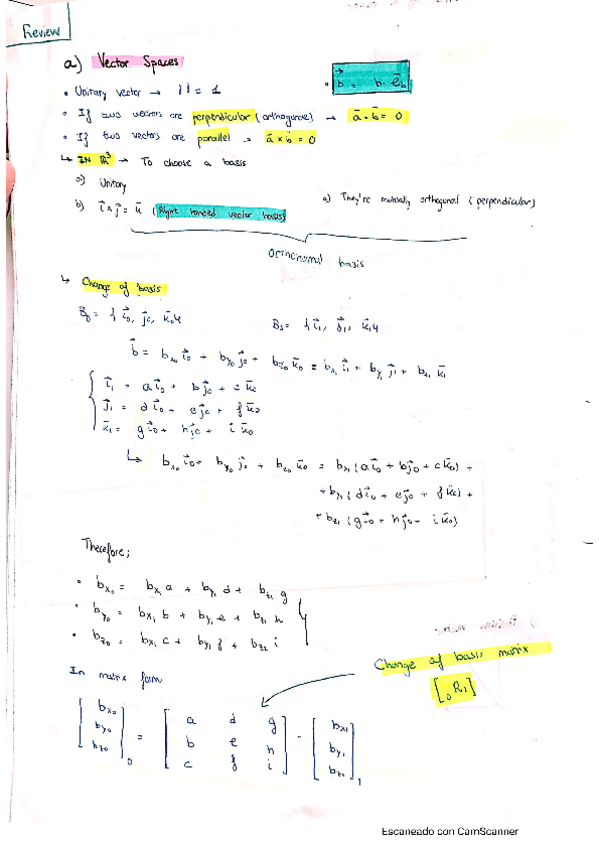 Review
a) Vector Spaces
• Unitary vector → | | = 1
• b⃗ = b · e⃗_b
• If two vectors are perpendicular (orthogonal) → a⃗ · b⃗ = 0
• If two vectors are parallel → a⃗ × b⃗ = 0
↳ IN ℝ³ → To choose a basis
a) Unitary
a) They're mutually orthogonal (perpendicular)
b) i⃗ × j⃗ = k⃗ (Right handed vector basis)
Orthonormal basis
↳ Change of basis
B₀ = { i⃗₀, j⃗₀, k⃗₀ }
B₁ = { i⃗₁, j⃗₁, k⃗₁ }
b⃗ = b_x₀ i⃗₀ + b_y₀ j⃗₀ + b_z₀ k⃗₀ = b_x₁ i⃗₁ + b_y₁ j⃗₁ + b_z₁ k⃗₁
i⃗₁ = a i⃗₀ + b j⃗₀ + c k⃗₀
j⃗₁ = d i⃗₀ + e j⃗₀ + f k⃗₀
k⃗₁ = g i⃗₀ + h j⃗₀ + i k⃗₀
↳ b_x₀ i⃗₀ + b_y₀ j⃗₀ + b_z₀ k⃗₀ = b_x₁ (a i⃗₀ + b j⃗₀ + c k⃗₀) +
+ b_y₁ (d i⃗₀ + e j⃗₀ + f k⃗₀) +
+ b_z₁ (g i⃗₀ + h j⃗₀ + i k⃗₀)
Therefore;
• b_x₀ = b_x₁ a + b_y₁ d + b_z₁ g
• b_y₀ = b_x₁ b + b_y₁ e + b_z₁ h
• b_z₀ = b_x₁ c + b_y₁ f + b_z₁ i
Change of basis matrix
[₀R₁]
In matrix form
[b_x₀ b_y₀ b_z₀]₀ = [a d g
b e h
c f i] · [b_x₁ b_y₁ b_z₁]₁
Escaneado con CamScanner